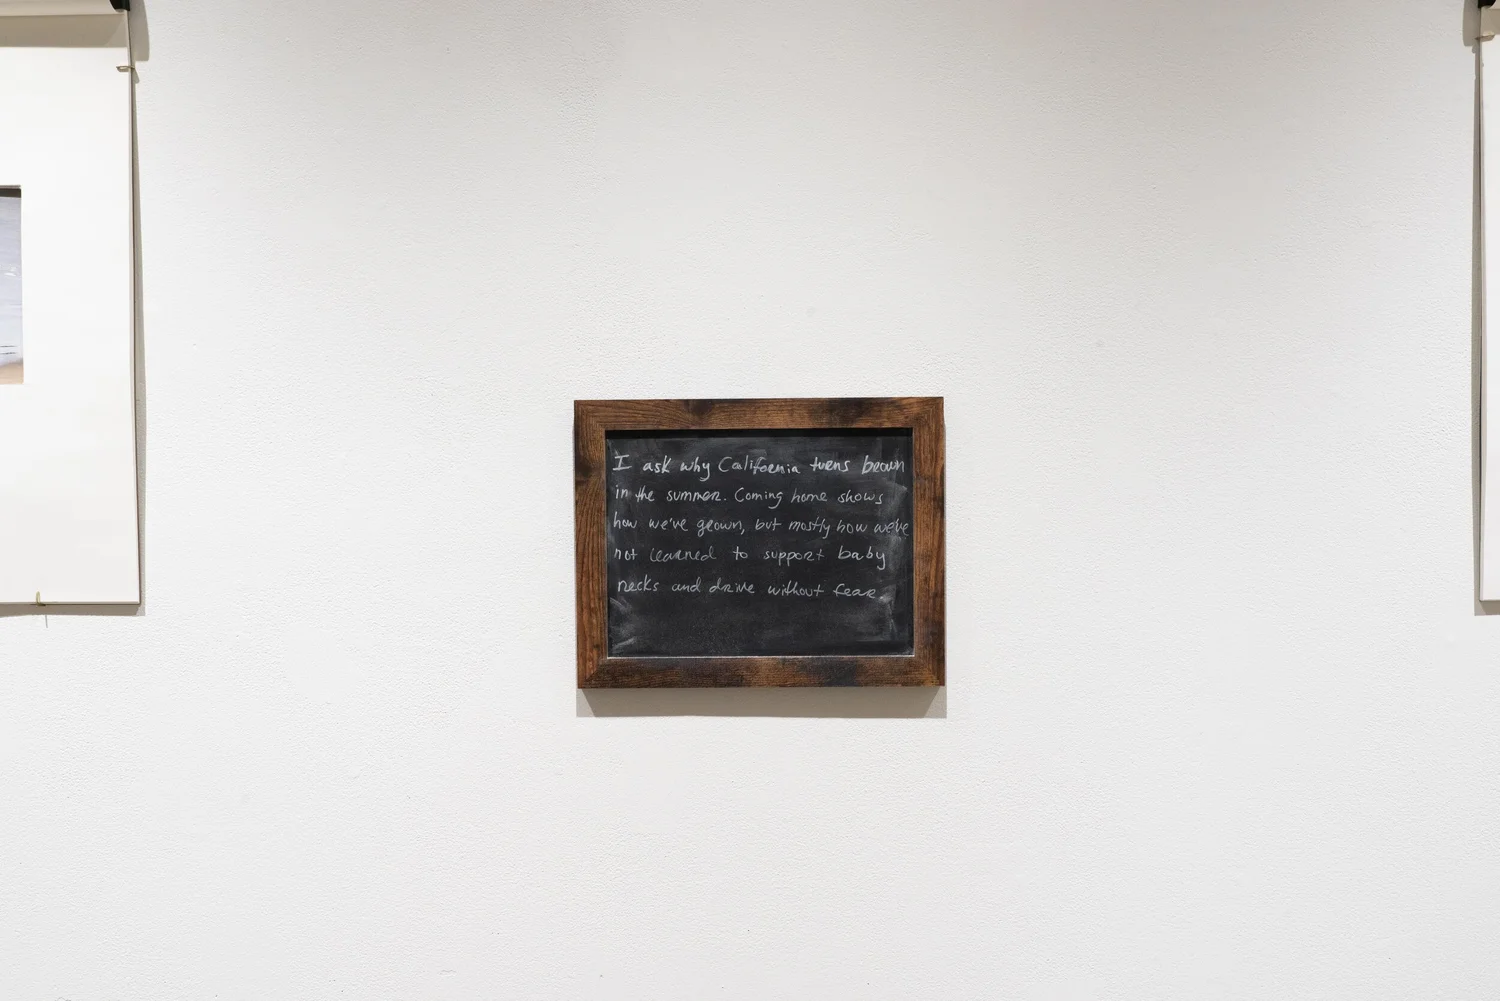 I ask why California turns brown
in the summer. Coming home shows
how we've grown, but mostly how we've
not learned to support baby
necks and drive without fear.